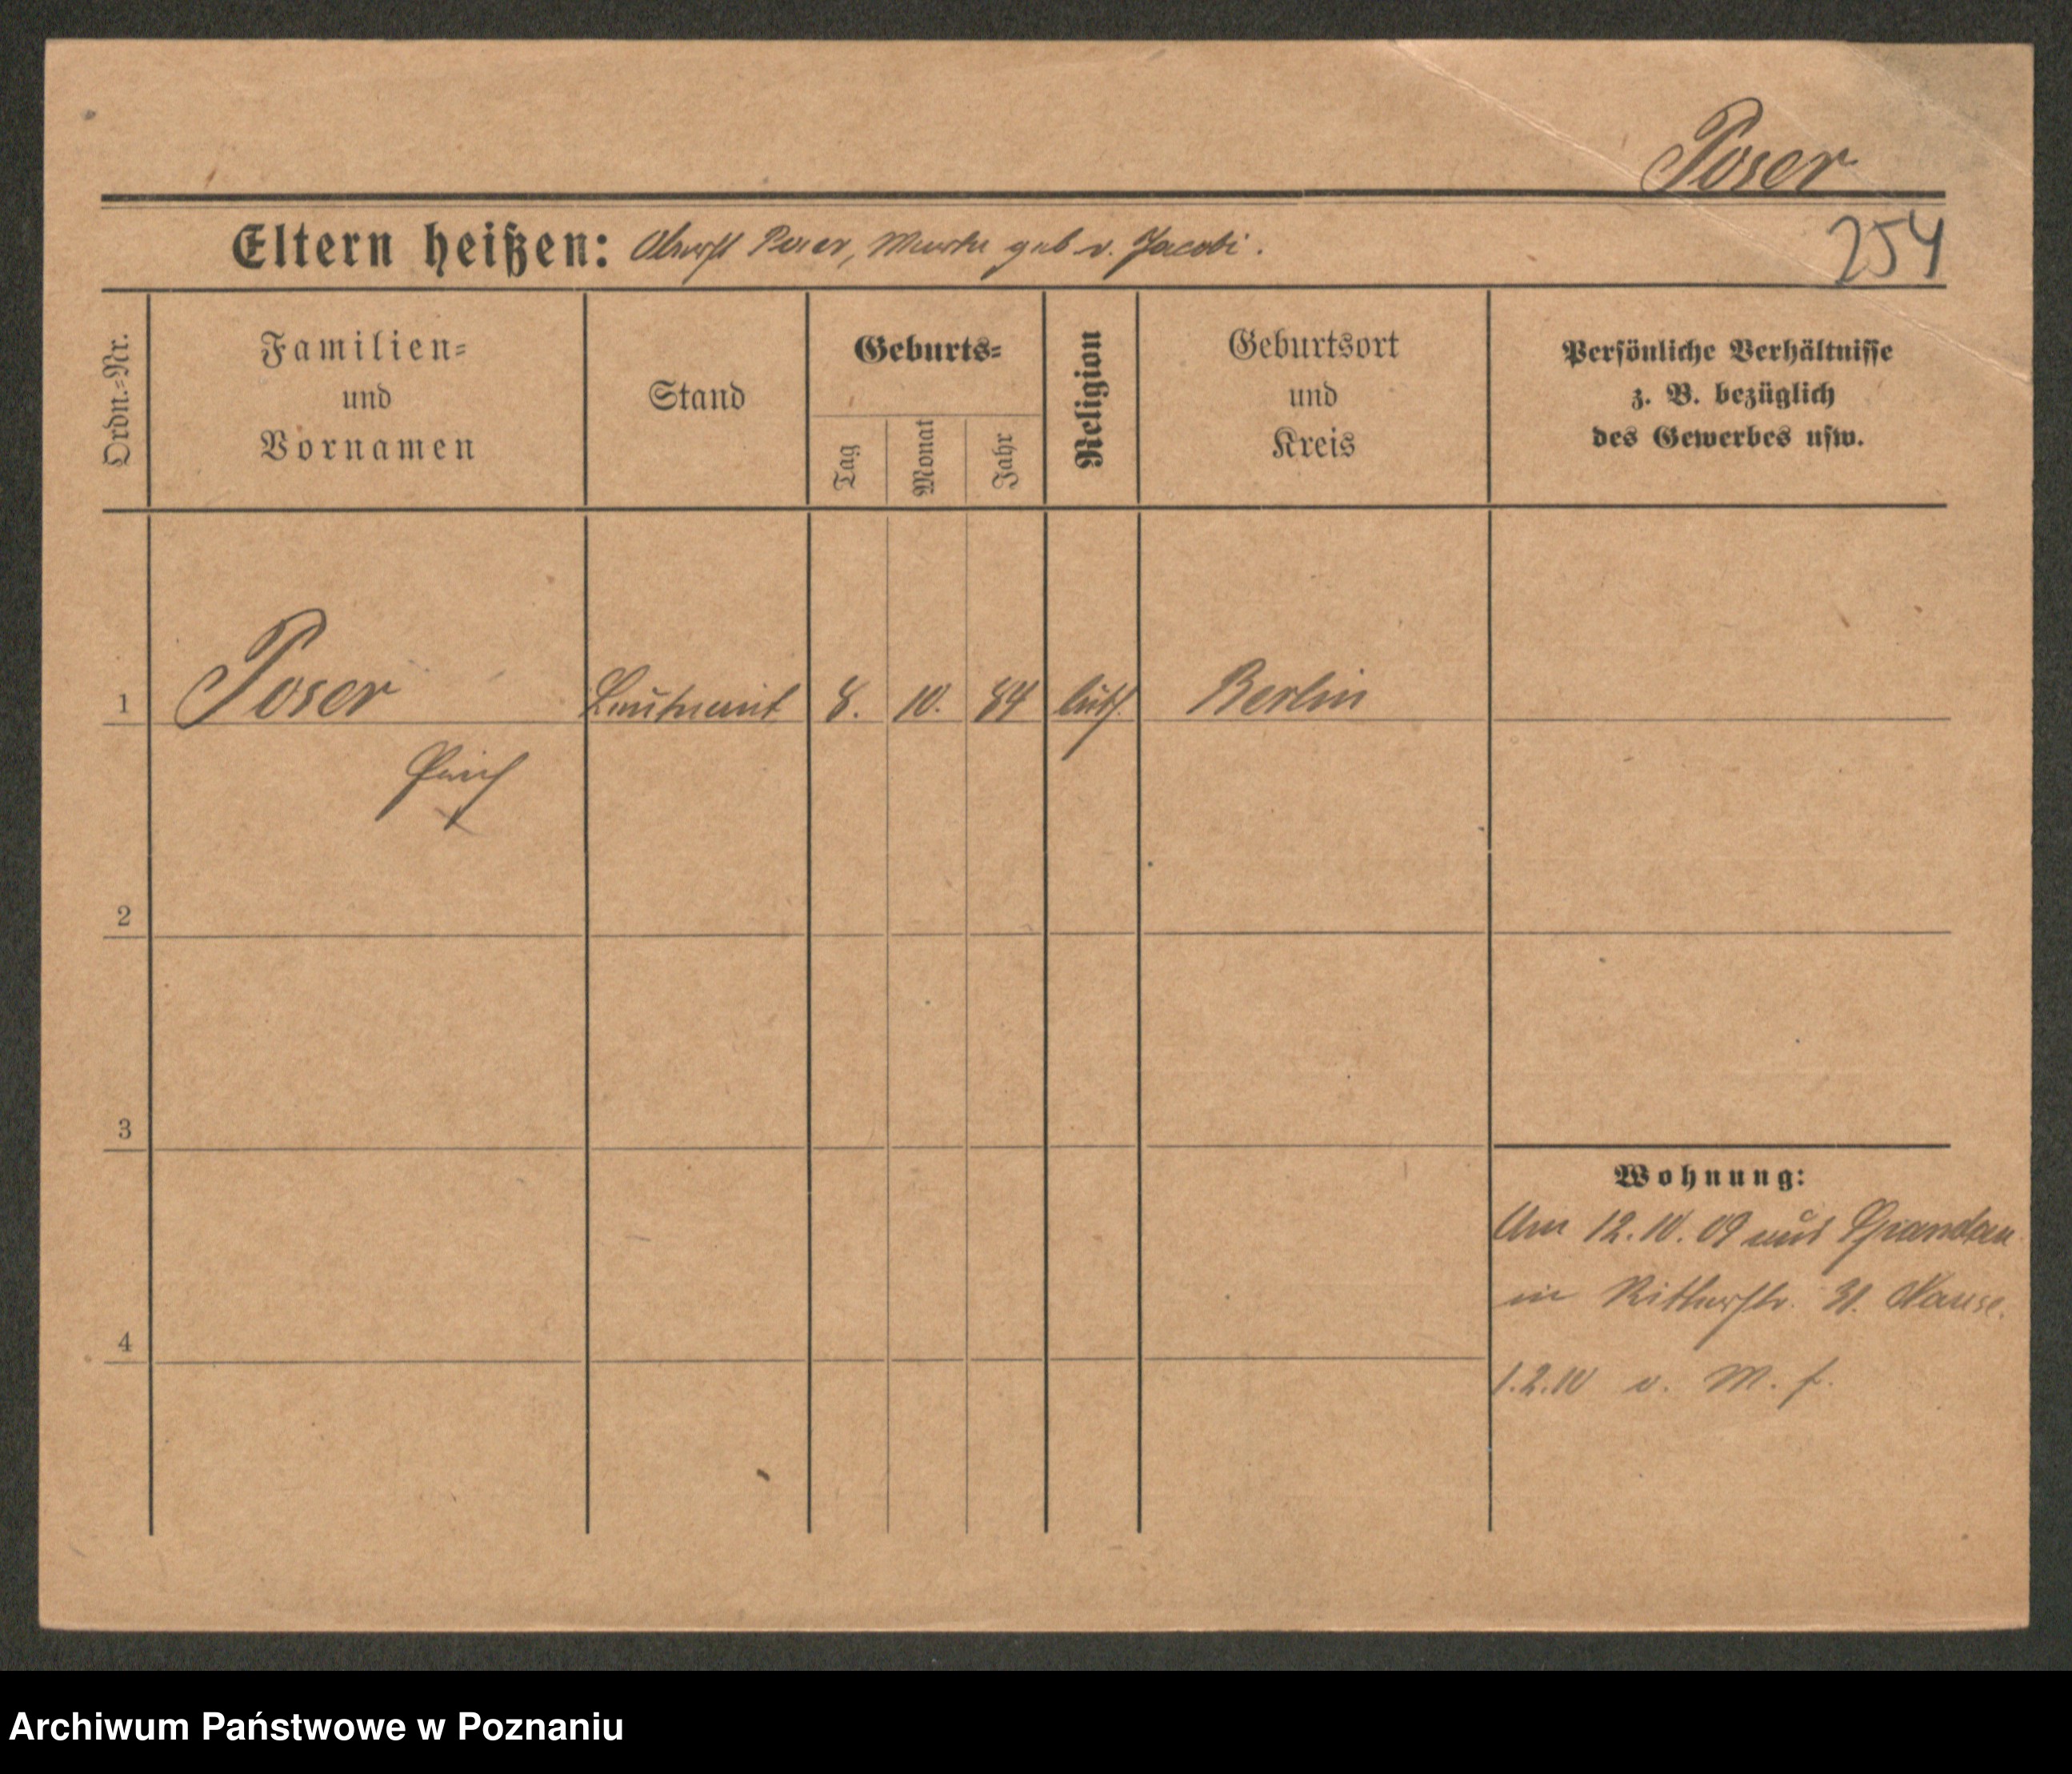 Poser
Eltern heißen: Poser, geb v. Jacobi.
254
Ordn.-Nr.
Familien-
und
Vornamen
Stand
Geburts-
Tag
Monat
Jahr
Religion
Geburtsort
und
Kreis
Persönliche Verhältnisse
z. B. bezüglich
des Gewerbes usw.
1 Poser Leutnant 8. 10. 84 luth. Berlin
2
3
Wohnung:
Am 12.10.09 aus Spandau
in Ritterstr. 31.
4
1.2.10 v. M. f.
Archiwum Państwowe w Poznaniu